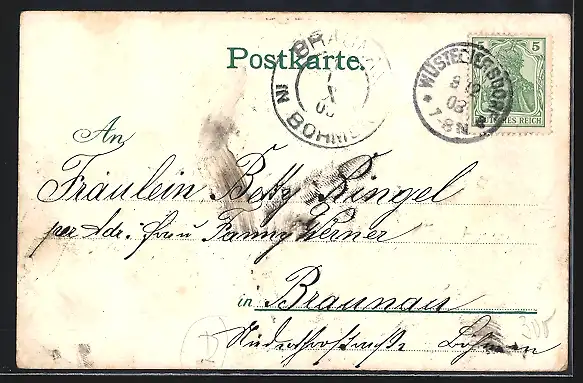 Postkarte.
BRAUNAU
IN BÖHMEN
WÜSTEGIERSDORF
8 12
03
7-8N.
5
DEUTSCHES REICH
An
Fräulein Betty Ringel
per Adr. Frau Fanny Werner
in Braunau
Böhmen
200